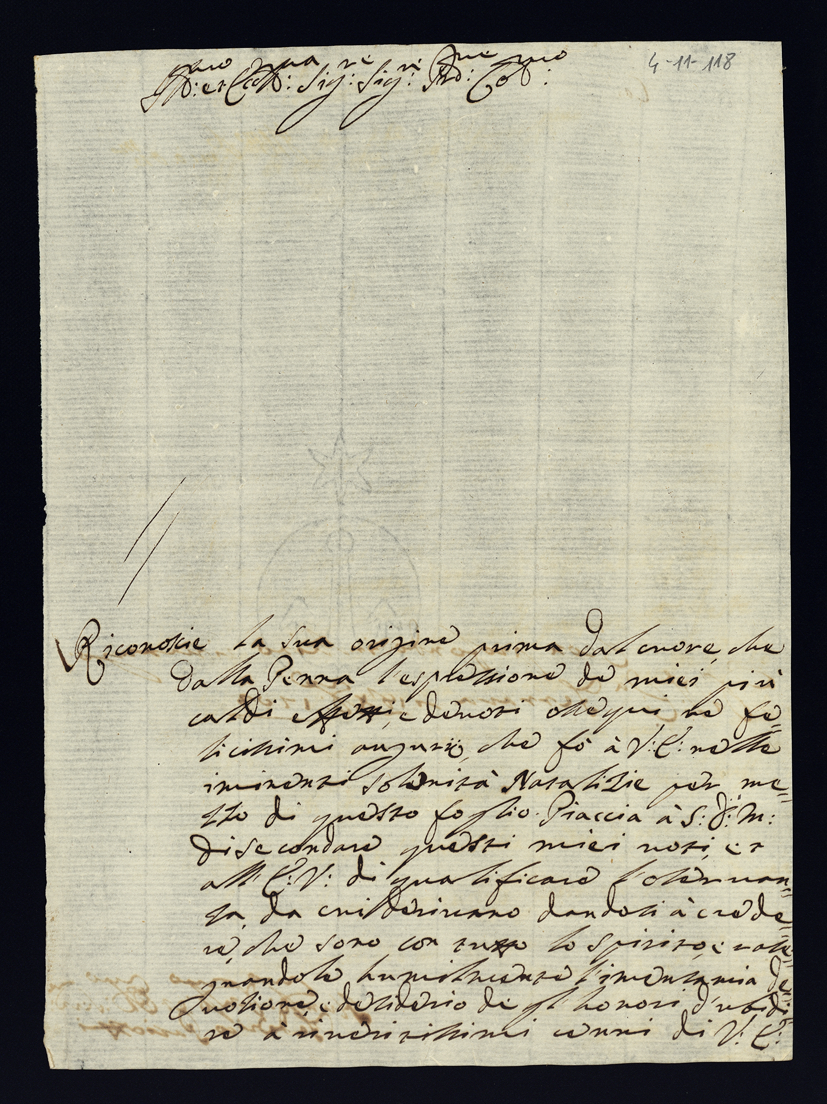 4-11-118
Ill:mo et Ecc:mo Sig:re Sig:re P͠ro: Col:mo
Riconoscie la sua origine prima dal cuore, che
dalla Penna l'espressione de miei più
caldi affetti, e devoti ossequi ne fe=
licissimi augurij, che fò à V: E: nelle
iminenti solenità Natalizie per me=
zzo di questo foglio. Piaccia à S: D: M:
di secondare questi miei voti, et
all' E: V: di qualificare l'osservan=
za, da cui derivano dandosi à crede=
re, che sono con tutto lo spirito, e
humilmente de=
votione, e desiderio de gl'honori d'ubidi=
re à riveritissimi cenni di V: E: